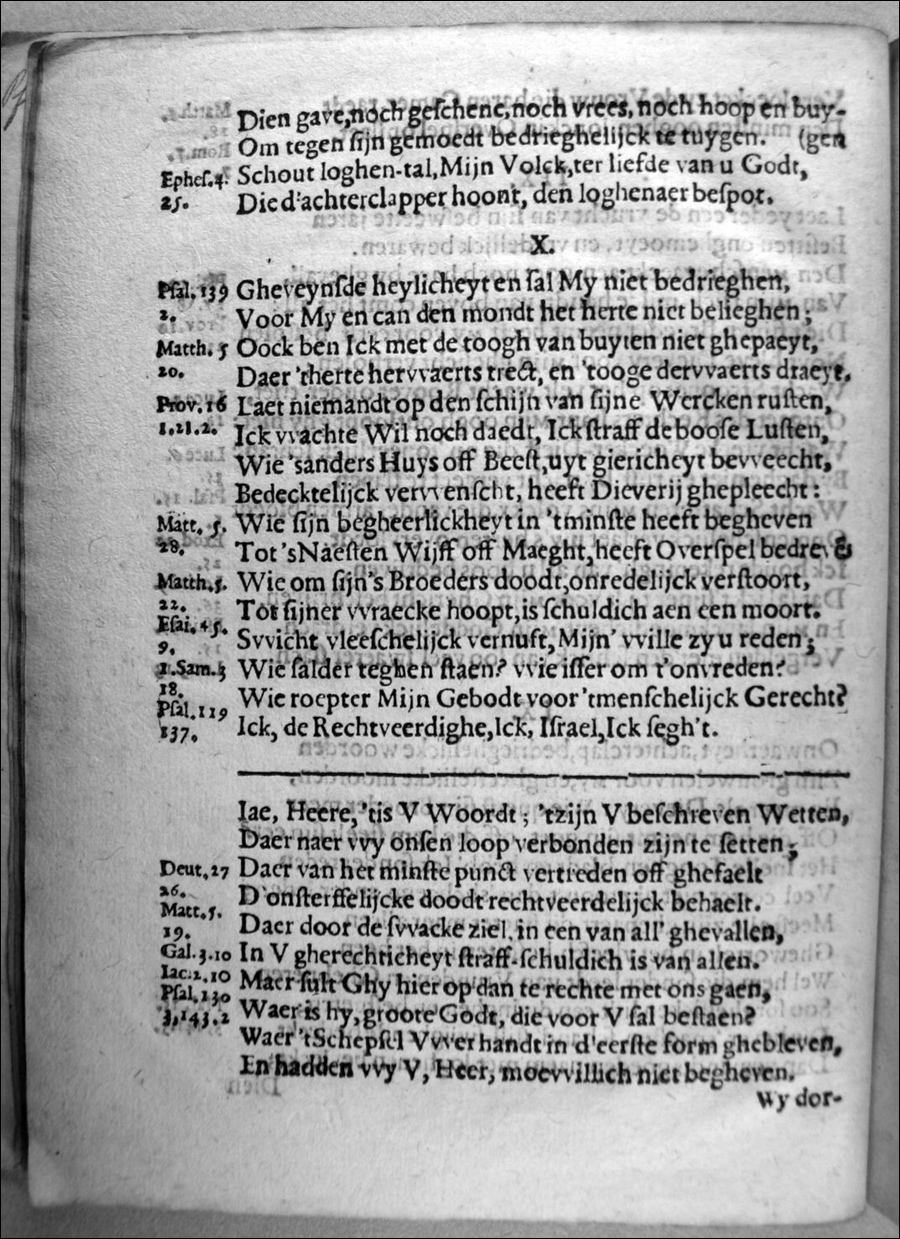 Dien gave, noch geſchenc, noch vrees, noch hoop en buy-
Om tegen ſijn gemoedt bedrieghelijck te tuygen. (gen
Epheſ. 4. Schout loghen-tal, Mijn Volck, ter liefde van u Godt,
25. Die d'achterclapper hoont, den loghenaer beſpot.
X.
Pſal. 139 Gheveynſde heylicheyt en ſal My niet bedrieghen,
2. Voor My en can den mondt het herte niet belieghen;
Matth. 5 Oock ben Ick met de toogh van buyten niet ghepaeyt,
20. Daer 'therte hervvaerts trect, en 'tooge dervvaerts draeyt.
Prov. 16 Laet niemandt op den ſchijn van ſijne Wercken ruſten,
1.21.2. Ick vvachte Wil noch daedt, Ick ſtraff de booſe Luſten,
Wie 'sanders Huys off Beeſt, uyt giericheyt bevveecht,
Bedecktelijck vervvenſcht, heeft Dieverij ghepleecht:
Matt. 5. Wie ſijn begheerlickheyt in 'tminſte heeft begheven
28. Tot 'sNaeſten Wijff off Maeght, heeft Overſpel bedrevē
Matth. 5. Wie om ſijn's Broeders doodt, onredelijck verſtoort,
22. Tot ſijner vvraecke hoopt, is ſchuldich aen een moort.
Eſai. 45. 9. Svvicht vleeſchelijck vernuft, Mijn' vville zy u reden;
1. Sam. 3 Wie ſalder teghen ſtaen? vvie iſſer om t'onvreden?
18. Wie roepter Mijn Gebodt voor 'tmenſchelijck Gerecht?
Pſal. 119 137. Ick, de Rechtveerdighe, Ick, Iſrael, Ick ſegh't.
Iae, Heere, 'tis V Woordt; 'tzijn V beſchreven Wetten,
Daer naer vvy onſen loop verbonden zijn te ſetten;
Deut. 27 Daer van het minſte punct vertreden off ghefaelt
26. D'onſterffelijcke doodt rechtveerdelijck behaelt.
Matt. 5. 19. Daer door de ſvvacke ziel, in een van all' ghevallen,
Gal. 3.10 In V gherechticheyt ſtraff-ſchuldich is van allen.
Iac. 2.10 Maer ſult Ghy hier op dan te rechte met ons gaen,
Pſal. 130 3, 143.2 Waer is hy, groote Godt, die voor V ſal beſtaen?
Waer 'tSchepſel Vvver handt in d'eerſte form ghebleven,
En hadden vvy V, Heer, moevvillich niet begheven.
Wy dor-